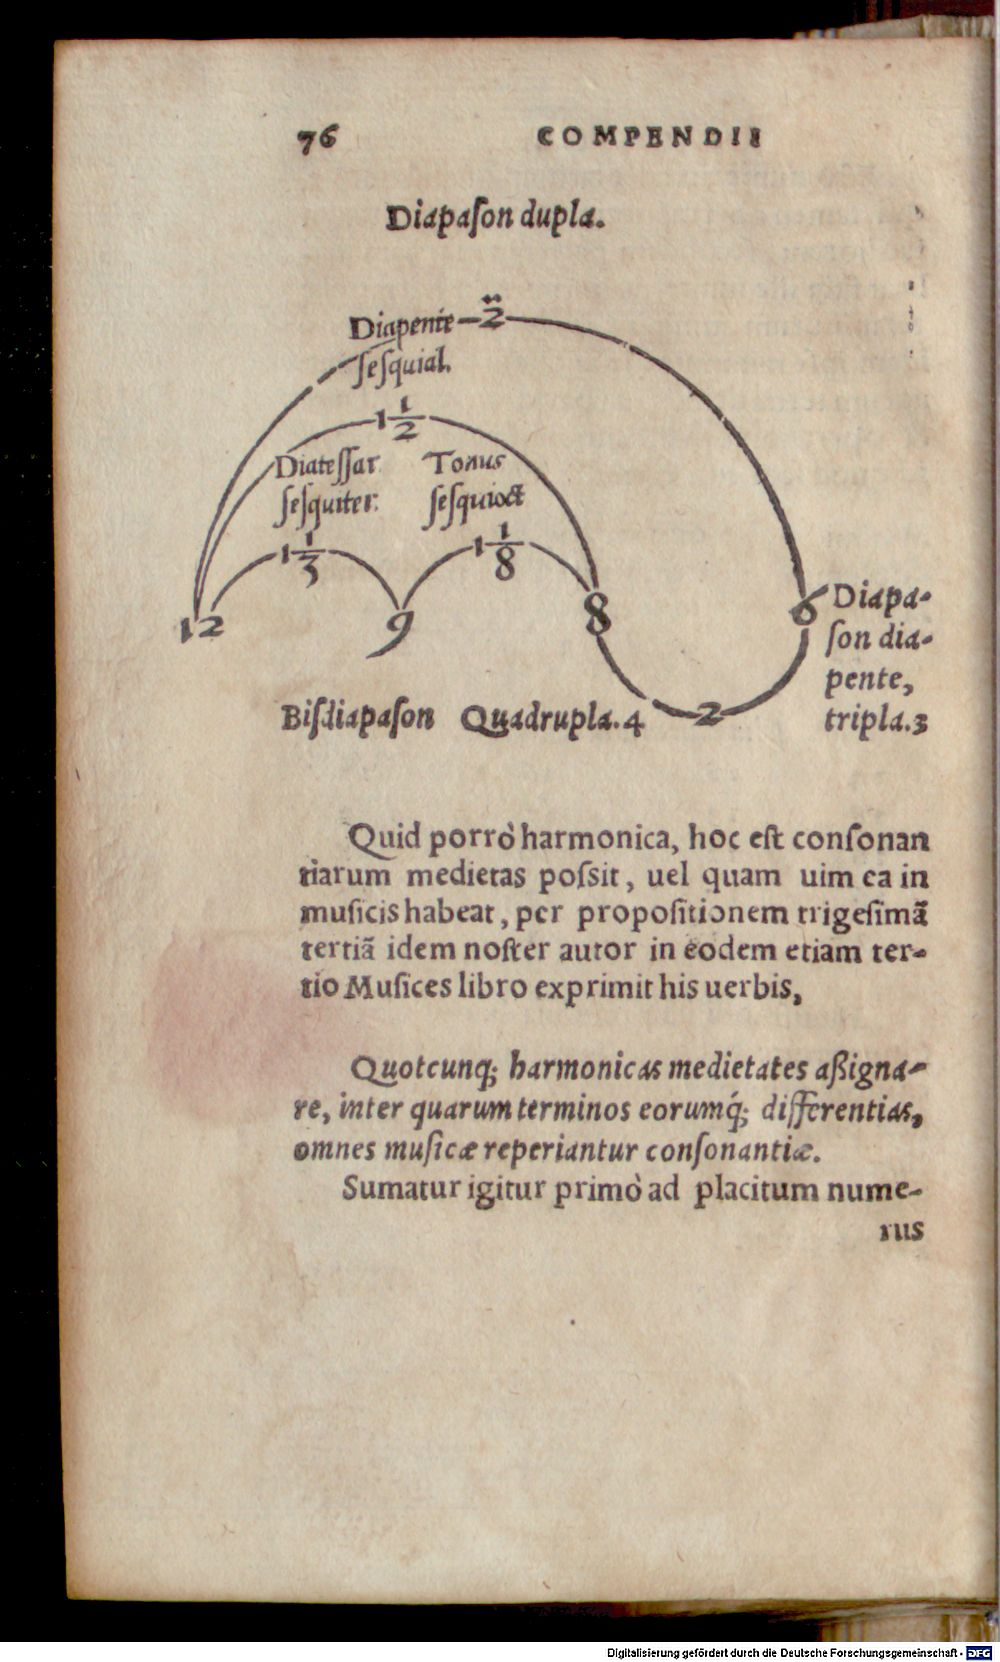 76 COMPENDII
Diapaſon dupla.
Diapente 2
ſeſquial.
1 1/2
Diateſſar Tonus
ſeſquiter: ſeſquioct
1 1/3 1 1/8
12 9 8 6
Diapa-
ſon dia-
pente,
tripla.3
Biſdiapaſon Quadrupla.4 2
Quid porrò harmonica, hoc eſt conſonan
tiarum medietas poſsit, uel quam uim ea in
muſicis habeat, per propoſitionem trigeſimã
tertiã idem noſter autor in eodem etiam ter-
tio Muſices libro exprimit his uerbis,
Quotcunq; harmonicas medietates aßigna-
re, inter quarum terminos eorumq́; differentias,
omnes muſicæ reperiantur conſonantiæ.
Sumatur igitur primò ad placitum nume-
rus
Digitalisierung gefördert durch die Deutsche Forschungsgemeinschaft - DFG